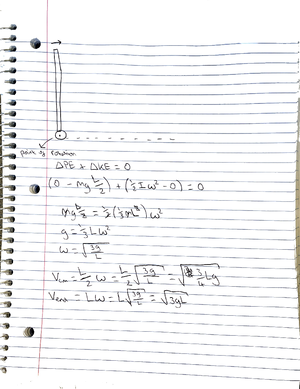 point of rotation
ΔPE + ΔKE = 0
(0 - mg L/2) + (1/2 I ω² - 0) = 0
mg L/2 = 1/2 (1/3 mL²) ω²
g = 1/3 L ω²
ω = √(3g/L)
Vcm = L/2 ω = L/2 √(3g/L) = √(3/4 Lg)
Vend = Lω = L √(3g/L) = √(3gL)